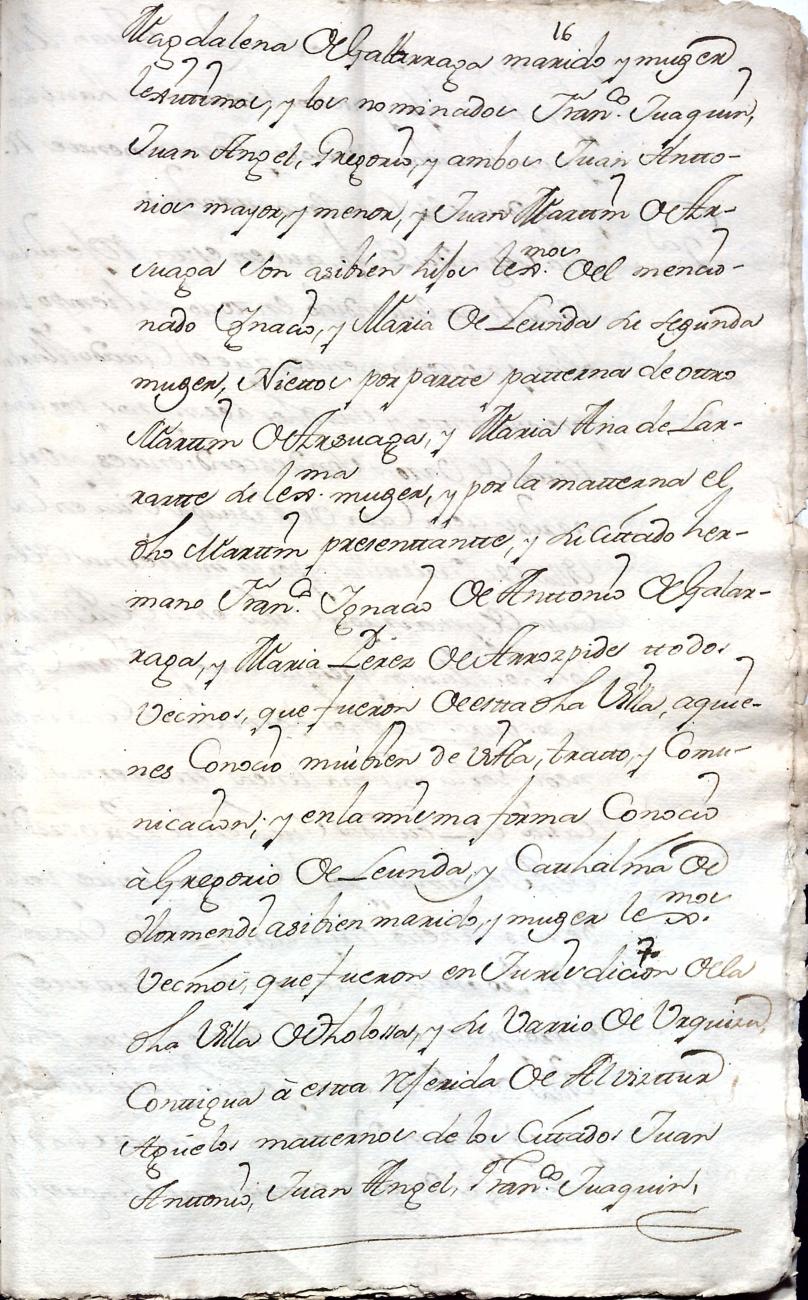 16
Magdalena de Galarraga marido y muger
lexitimos, y los nominados Fran.co Juaquin,
Juan Angel, Gregorio, y ambos Juan Antto-
nios mayor, y menor, y Juan Martin de Ar-
suaga son asibien hijos lex.mos del mencio-
nado Ignacio, y Maria de Leunda su segunda
muger, Niettos por partte patterna de ottro
Martin de Arsuaga, y Maria Ana de Lar-
rartte su lex.ma muger, y por la matterna el
dho Martin presenttantte, y su Cittado her-
mano Fran.co Ignacio de Anttonio de Galar-
raga, y Maria Perez de Arrospide ttodos
Vecinos, que fueron de estta dha Villa, aquie-
nes Conocio mui bien de vistta, tratto, y Comu-
nicacion; y en la misma forma Conocio
à Gregorio de Leunda, y Cathalina de
Hormendi asibien marido, y muger lex.mos
Vecinos, que fueron en Jurisdicion de la
dha Villa de Tholossa, y su Varrio de Urquizu,
Conttigua à estta referida de Alvizttur
Aguelos matternos de los Cittados Juan
Anttonio, Juan Angel, Fran.co Juaquin,